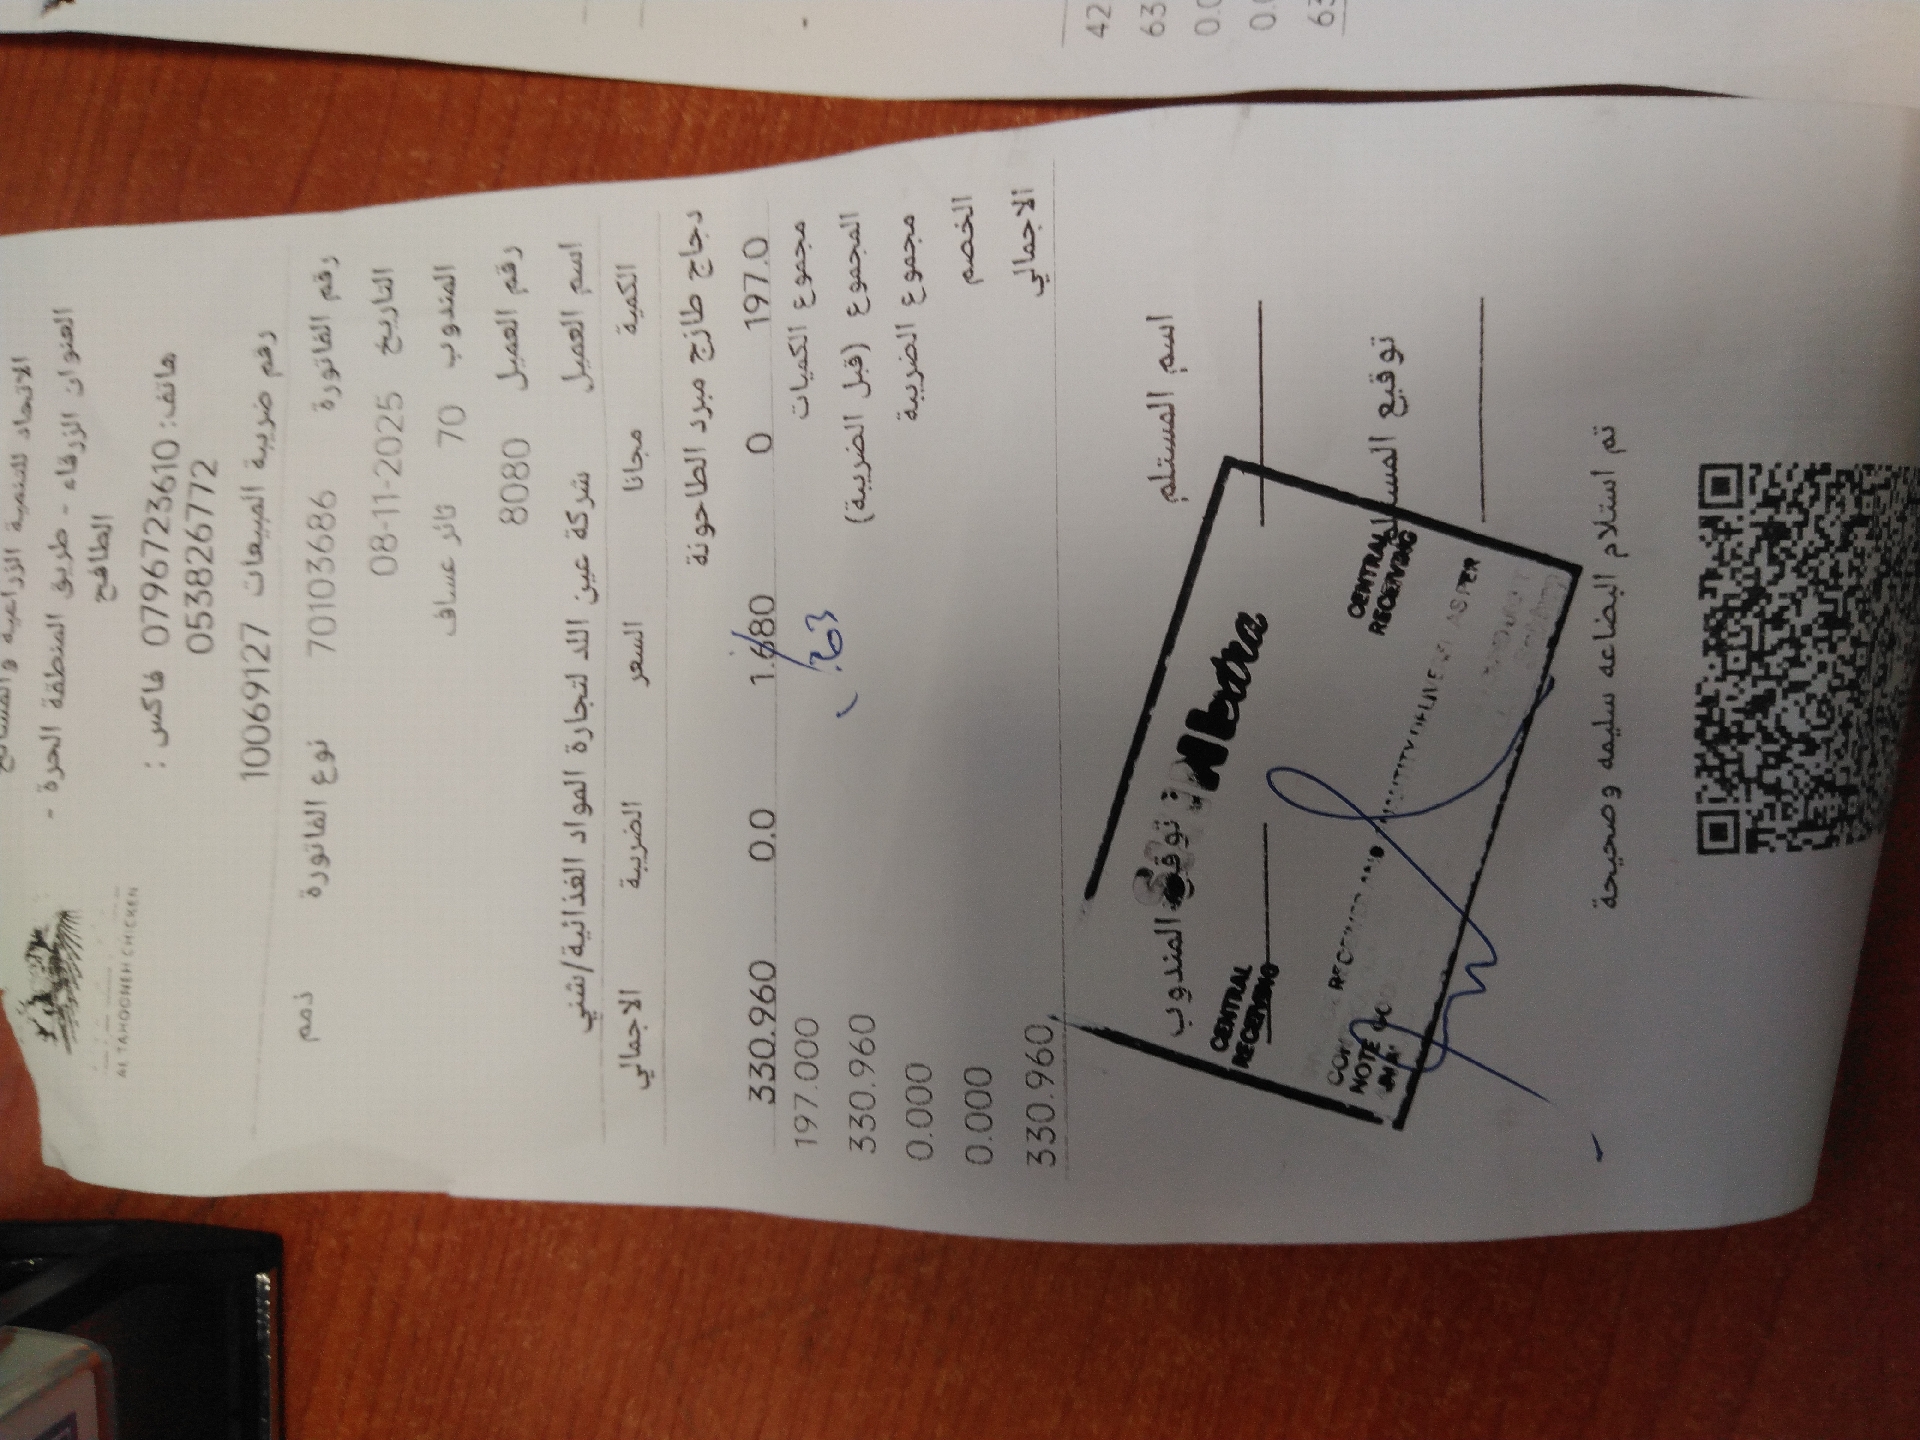 AL TAHOONEH CHICKEN
الاتحاد للتنمية الزراعية و
العنوان الزرقاء - طريق المنطقة الحرة -
الطافح
هاتف: 0796723610 فاكس :
0538826772
رقم ضريبة المبيعات 10069127
رقم الفاتورة 70103686 نوع الفاتورة ذمم
التاريخ 08-11-2025
المندوب 70 ثائر عساف
رقم العميل 8080
اسم العميل شركة عين اللد لتجارة المواد الغذائية/شني
الكمية مجانا السعر الضريبة الاجمالي
دجاج طازج مبرد الطاحونة
197.0 0 1.680 0.0 330.960
1.63
مجموع الكميات 197.000
المجموع (قبل الضريبة) 330.960
مجموع الضريبة 0.000
الخصم 0.000
الاجمالي 330.960
اسم المستلم توقيع المندوب :
Abdra
CENTRAL
RECEIVING
توقيع المستلم
CENTRAL
RECEIVING
RECEIVED AND QUANTITY DELIVERY AS PER
NOTE
تم استلام البضاعه سليمه وصحيحة
42
63
0.0
0.0
63